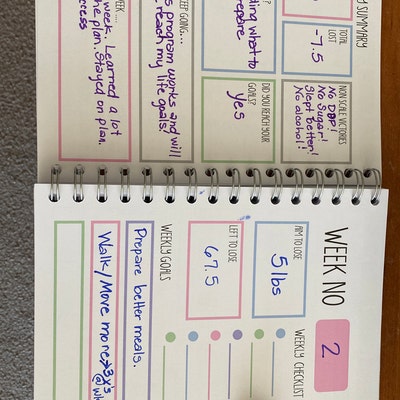 Y SUMMARY
TOTAL
LOST
-7.5
NON SCALE VICTORIES
No DDP!
No Sugar!
Slept better!
No alcohol!
DID YOU REACH YOUR
GOALS?
Yes
what to
GOING...
program works and will
reach my life goals!
WEEK....
week. Learned a lot
plan. Stayed on plan.
WEEK NO
2
AIM TO LOSE
5 lbs
LEFT TO LOSE
67.5
WEEKLY CHECKLIST
WEEKLY GOALS
Prepare better meals.
Walk/Move more→3x's